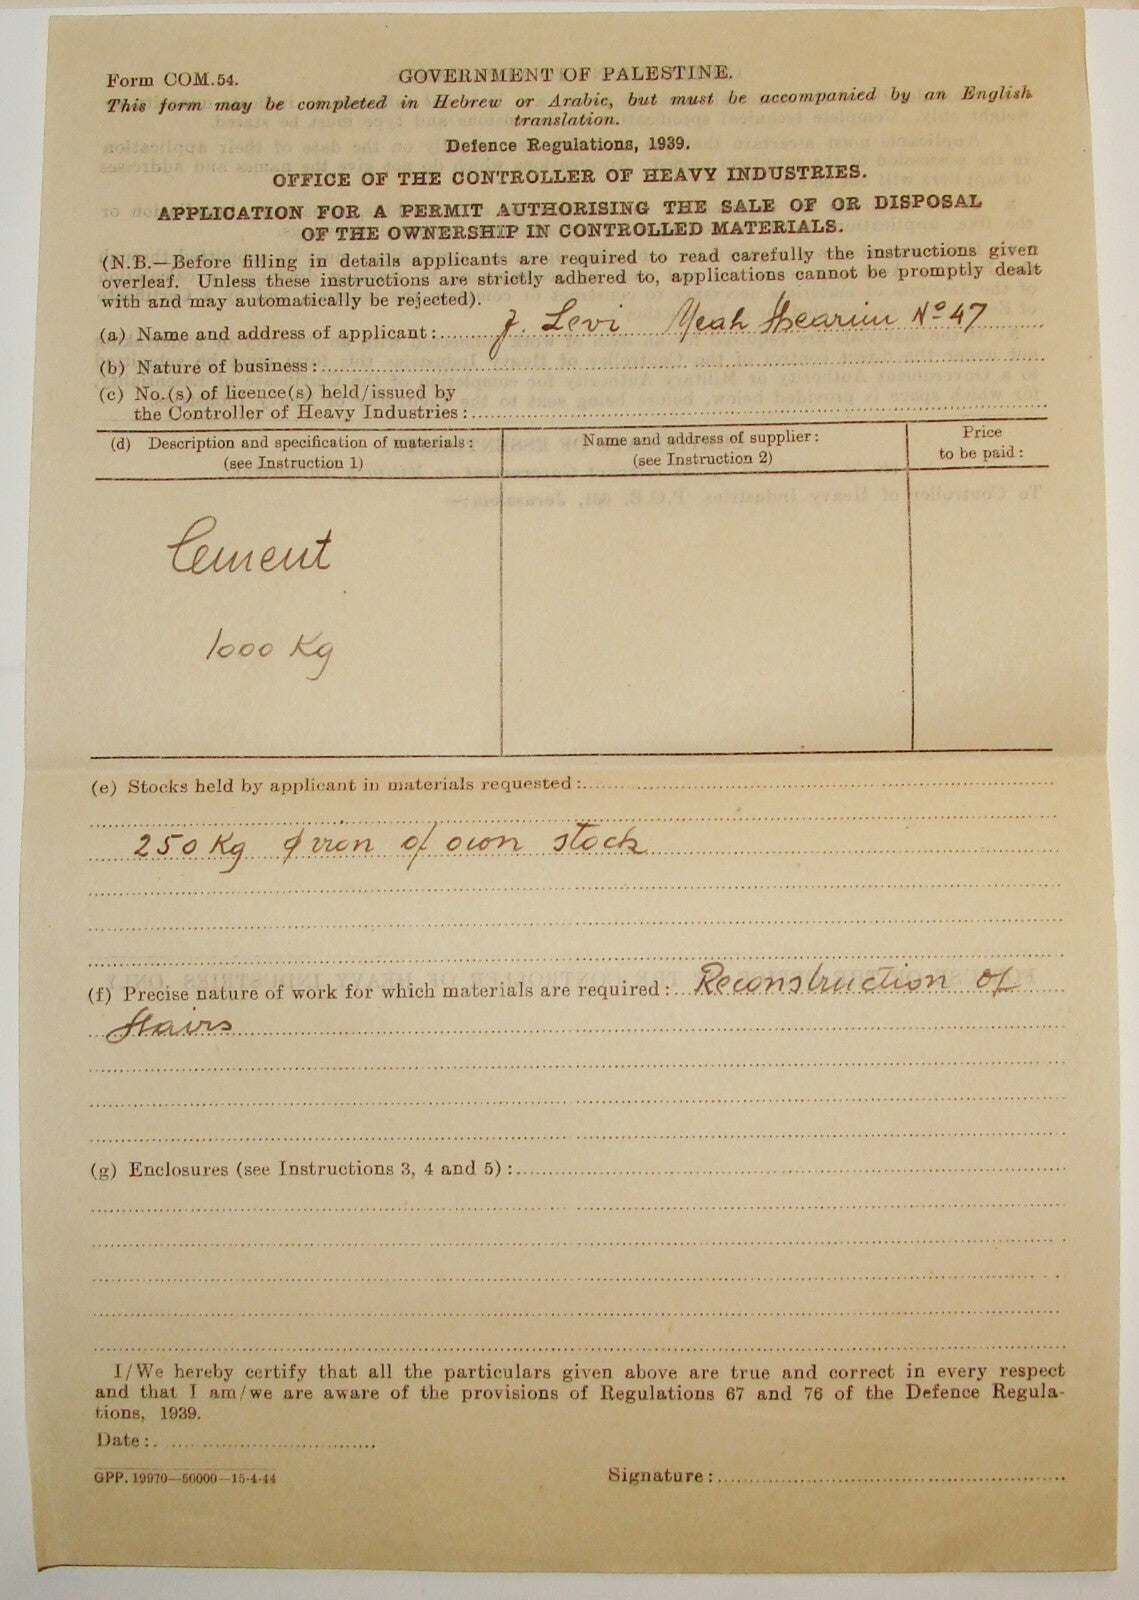 Form COM.54.
GOVERNMENT OF PALESTINE.
This form may be completed in Hebrew or Arabic, but must be accompanied by an English
translation.
Defence Regulations, 1939.
OFFICE OF THE CONTROLLER OF HEAVY INDUSTRIES.
APPLICATION FOR A PERMIT AUTHORISING THE SALE OF OR DISPOSAL
OF THE OWNERSHIP IN CONTROLLED MATERIALS.
(N.B.—Before filling in details applicants are required to read carefully the instructions given
overleaf. Unless these instructions are strictly adhered to, applications cannot be promptly dealt
with and may automatically be rejected).
(a) Name and address of applicant: J. Levi Meah Shearim No 47
(b) Nature of business:
(c) No.(s) of licence(s) held/issued by
the Controller of Heavy Industries:
(d) Description and specification of materials:
(see Instruction 1)
Name and address of supplier:
(see Instruction 2)
Price
to be paid:
Cement
1000 Kg
(e) Stocks held by applicant in materials requested:
250 Kg iron of own stock
(f) Precise nature of work for which materials are required: Reconstruction of
Stairs
(g) Enclosures (see Instructions 3, 4 and 5):
I/We hereby certify that all the particulars given above are true and correct in every respect
and that I am/we are aware of the provisions of Regulations 67 and 76 of the Defence Regula-
tions, 1939.
Date:
GPP. 19970—50000—15-4-44
Signature: